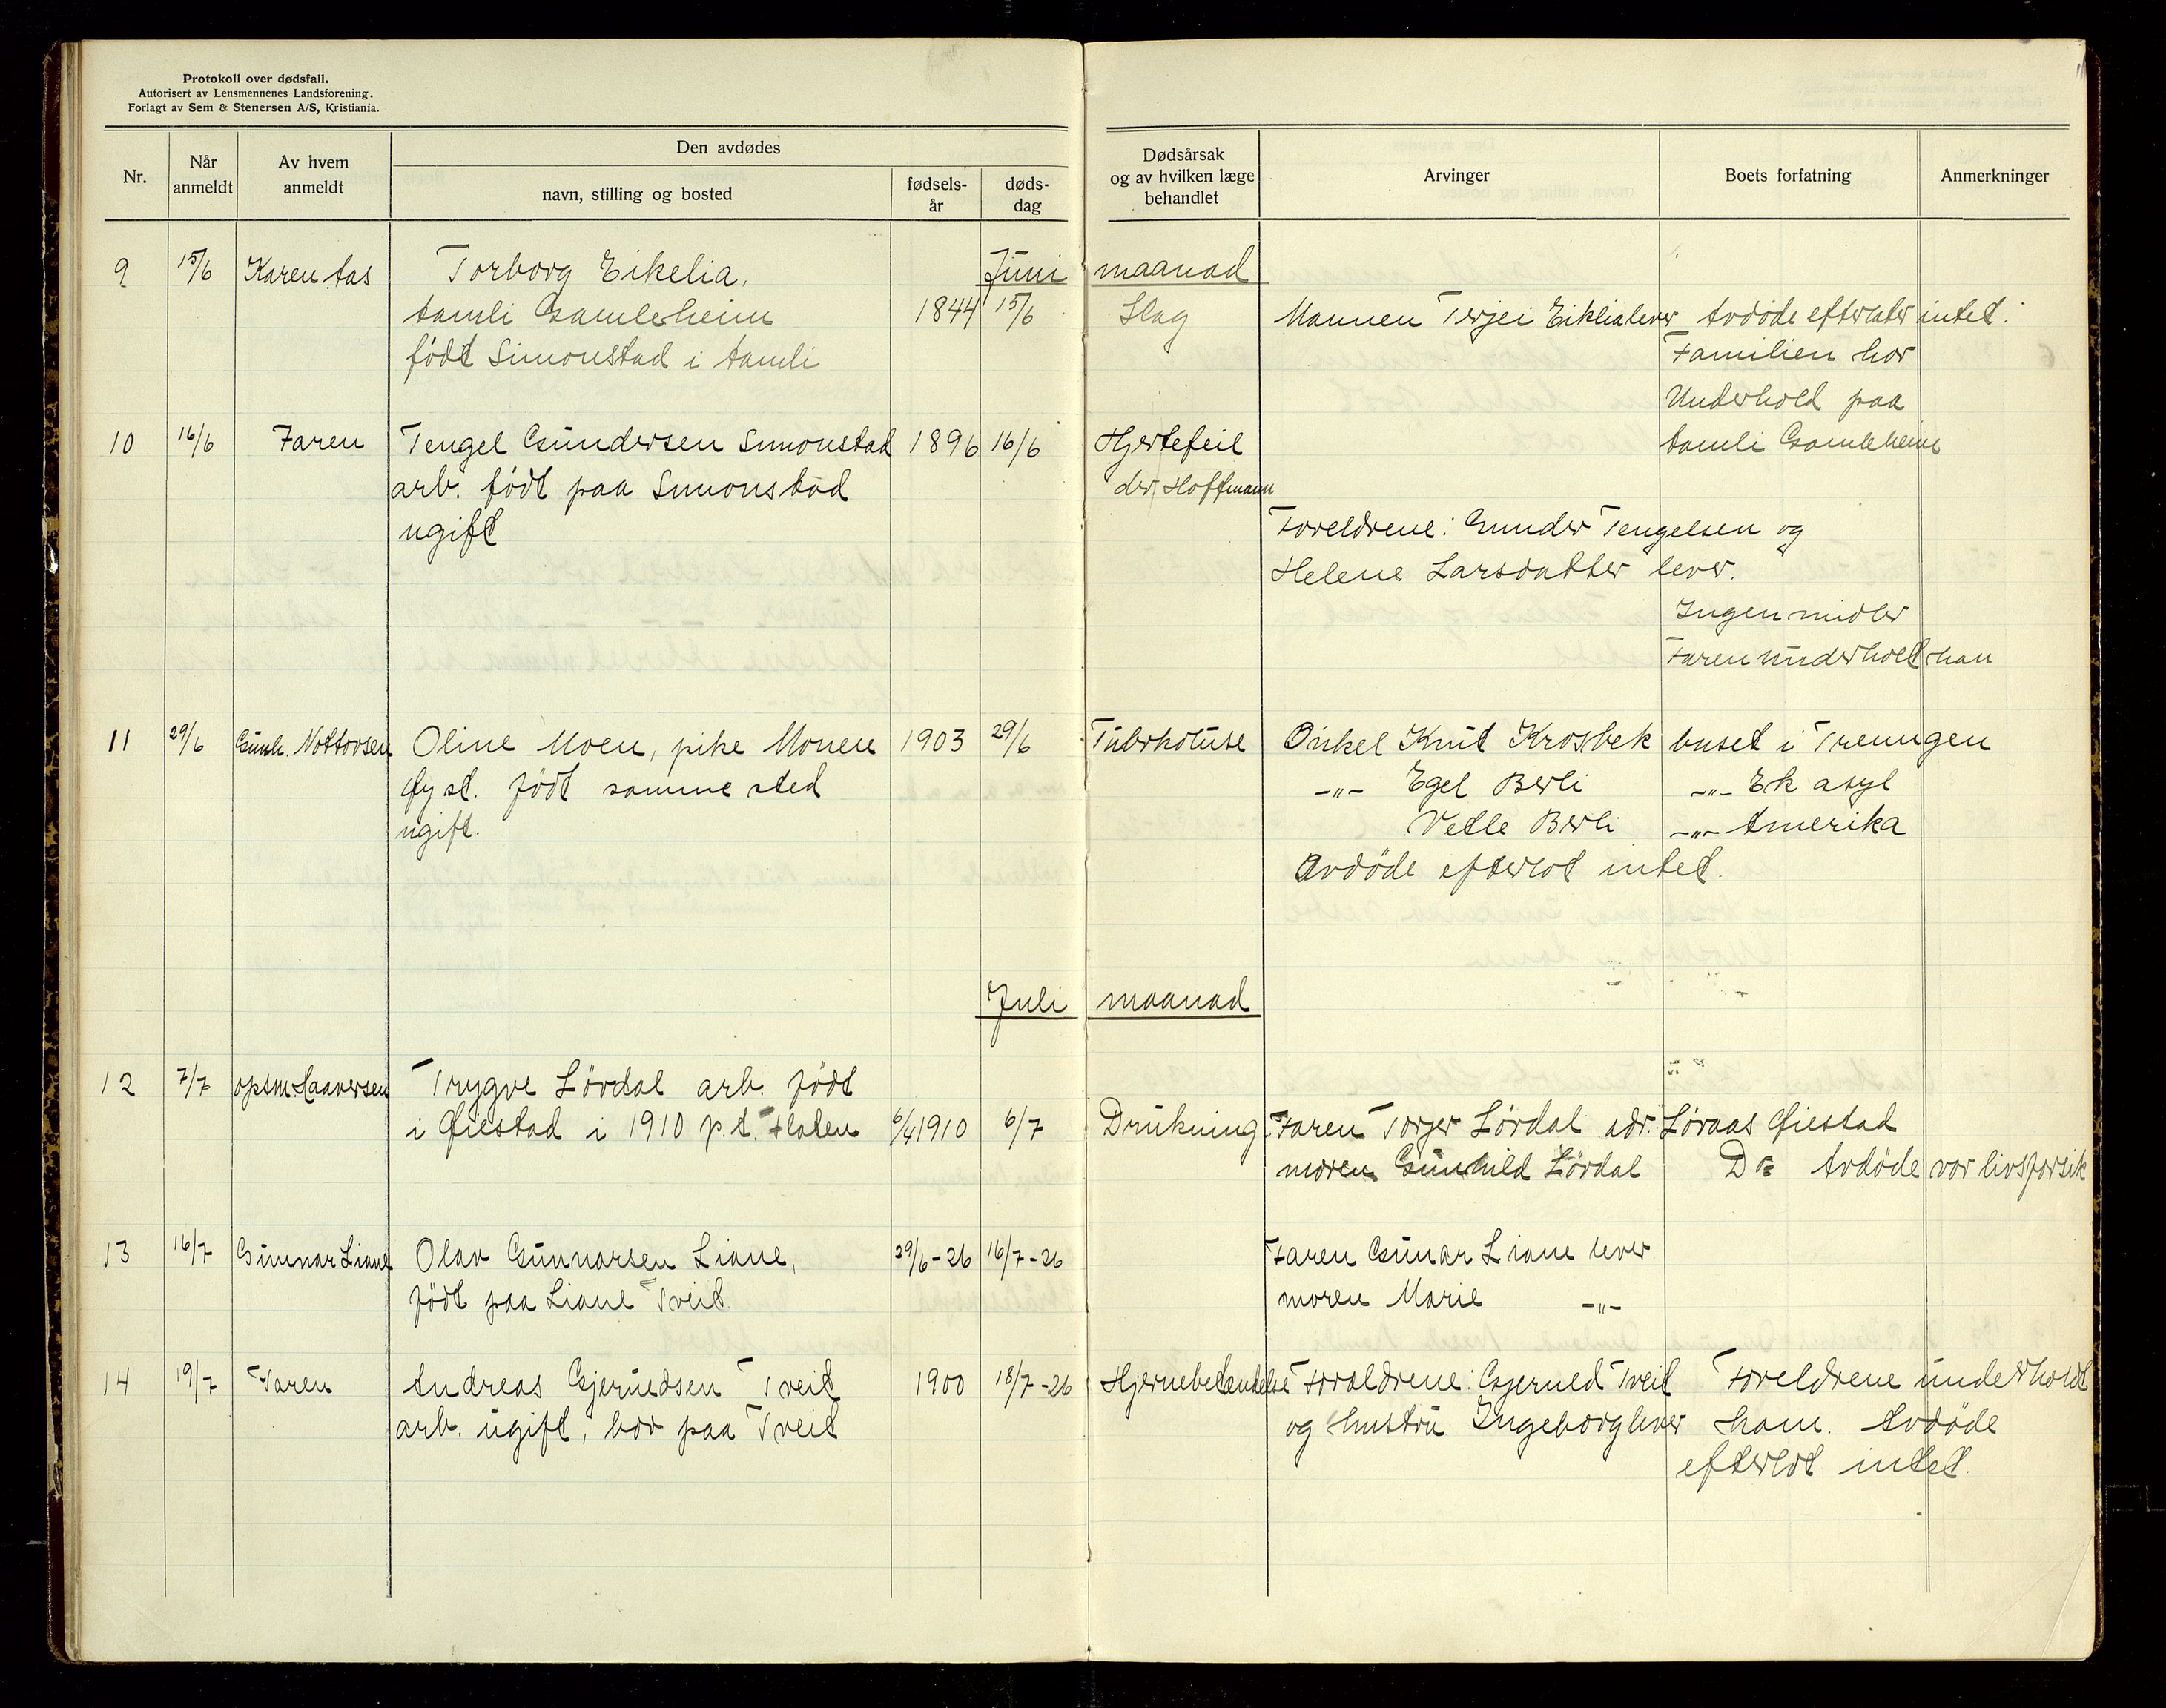 Protokoll over dødsfall.
Autorisert av Lensmennenes Landsforening.
Forlagt av Sem & Stenersen A/S, Kristiania.
Nr.
Når anmeldt
Av hvem anmeldt
Den avdødes
navn, stilling og bosted
fødsels-år
døds-dag
Dødsårsak og av hvilken læge behandlet
Arvinger
Boets forfatning
Anmerkninger
9 15/6 Karen Aas Torborg Eikelia, Juni maanad
Aamli Gamleheim 1844 15/6 Slag Mannen Terjei Eiklia lever Avdöde efterlater intet.
födt Simonstad i Aamli Familien har
Underhold paa
Aamli Gamleheim
10 16/6 Faren Tengel Gundersen Simonstad 1896 16/6 Hjertefeil
arb. födt paa Simonstad dr. Hoffmann
ugift Foreldrene: Gunder Tengelsen og
Helene Larsdatter lever.
Ingen midler
Faren underholt han
11 29/6 Gunh. Nottovsen Oline Moen, pike Monen 1903 29/6 Tuberkoluse Onkel Knut Krosbek buset i Treungen
Øyst. födt samme sted -"- Egel Berli -"- Ek asyl
ugift. Vetle Berli -"- Amerika
Avdöde efterlot intet.
Juli maanad
12 7/7 opsm. Haaversen Trygve Lövdal arb. födt
i Øiestad i 1910 p.t. Flaten 6/4 1910 6/7 Drukning Faren Torjer Lövdal adr. Løvaas Øiestad
moren Gunhild Lövdal Do Avdöde var livsforsik
13 16/7 Gunnar Liane Olav Gunnarsen Liane, 29/6-26 16/7-26 Faren Gunar Liane lever
födt paa Liane Tveit. moren Marie -"-
14 19/7 Faren Andreas Gjeruldsen Tveit 1900 18/7-26 Hjernebetændelse Foreldrene: Gjeruld Tveit Foreldrene underholdt
arb. ugift, bor paa Tveit og hustru Ingeborg lever ham. Avdöde
efterlot intet.